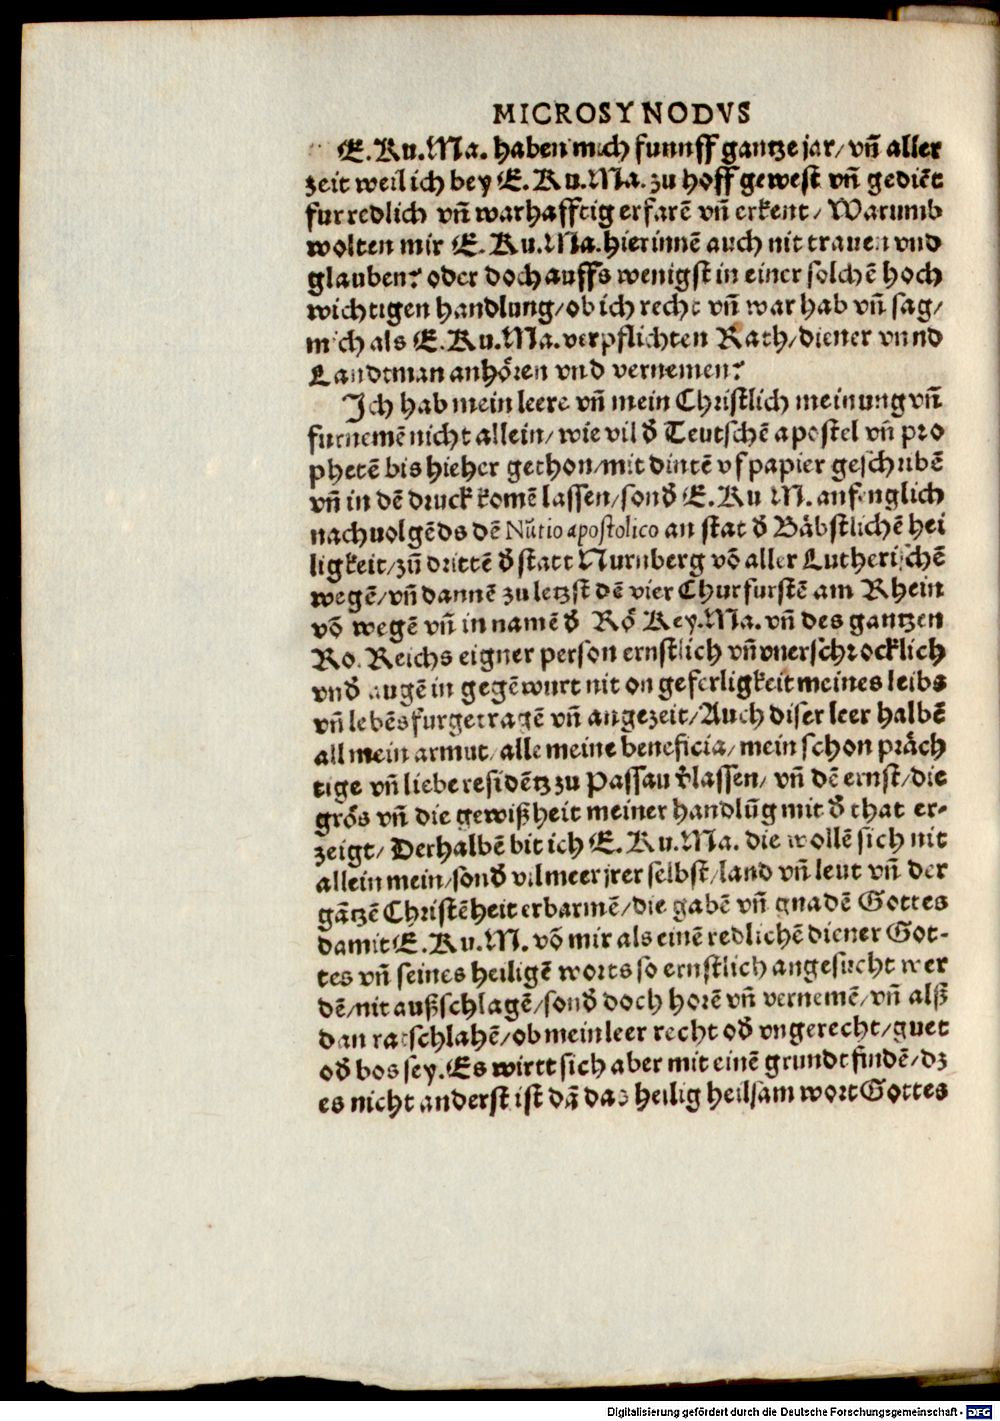 MICROSYNODVS
E. Ku. Ma. haben mich funnff gantze jar/ vñ aller
zeit weil ich bey E. Ku. Ma. zu hoff gewest vñ gediẽt
fur redlich vñ warhafftig erfarẽ vñ erkent/ Warumb
wolten mir E. Ku. Ma. hierinnẽ auch nit trauen vnd
glauben? oder doch auffs wenigst in einer solchẽ hoch
wichtigen handlung/ ob ich recht vñ war hab vñ sag/
mich als E. Ku. Ma. verpflichten Rath/ diener vnnd
Landtman anhören vnd vernemen?
Ich hab mein leere vñ mein Christlich meinung vñ
furnemẽ nicht allein/ wie vil đ Teutschẽ apostel vñ pro
phetẽ bis hieher gethon/ mit dintẽ vf papier geschribẽ
vñ in dẽ druck komẽ lassen/ sonđ E. Ku M. anfenglich
nachuolgẽds dẽ Nũtio apostolico an stat đ Bäbstlichẽ hei
ligkeit/ zũ drittẽ đ statt Nurnberg võ aller Lutherischẽ
wegẽ/ vñ dannẽ zu letzst dẽ vier Churfurstẽ am Rhein
võ wegẽ vñ in namẽ đ Rö Key. Ma. vñ des gantzen
Ro. Reichs eigner person ernstlich vñ vnerschrocklich
vnđ augẽ in gegẽwurt nit on geferligkeit meines leibs
vñ lebẽs furgetragẽ vñ angezeit/ Auch diser leer halbẽ
all mein armut/ alle meine beneficia/ mein schon präch
tige vñ liebe residẽtz zu Passau v̑lassen/ vñ dẽ ernst/ die
grös vñ die gewißheit meiner handlũg mit đ that er-
zeigt/ Derhalbẽ bit ich E. Ku. Ma. die wollẽ sich nit
allein mein/ sonđ vil meer jrer selbst/ land vñ leut vñ der
gãtzẽ Christẽheit erbarmẽ/ die gabẽ vñ gnadẽ Gottes
damit E. Ku. M. võ mir als einẽ redlichẽ diener Got-
tes vñ seines heiligẽ worts so ernstlich angesucht wer
dẽ/ nit außschlagẽ/ sonđ doch horẽ vñ vernemẽ/ vñ alß
dan ratschlahẽ/ ob mein leer recht ođ vngerecht/ guet
ođ bos sey. Es wirtt sich aber mit einẽ grundt findẽ/ dz
es nicht anderst ist dã das heilig heilsam wort Gottes
Digitalisierung gefördert durch die Deutsche Forschungsgemeinschaft - DFG